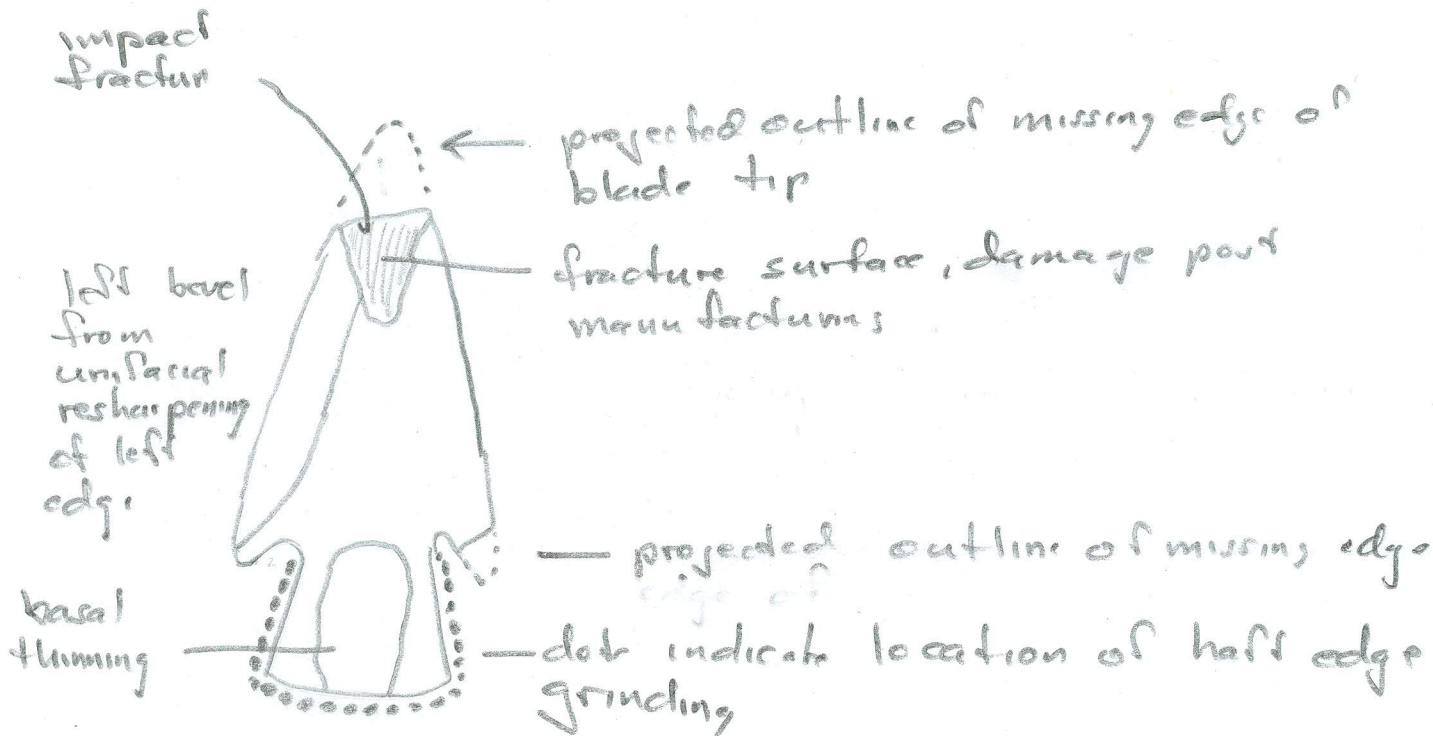 impact
fractur
projected outline of missing edge of
blade tip
fracture surface, damage post
manufacturing
left bevel
from
unifacial
resharpening
of left
edge
projected outline of missing edge
edge of
basal
thinning
dots indicate location of haft edge
grinding